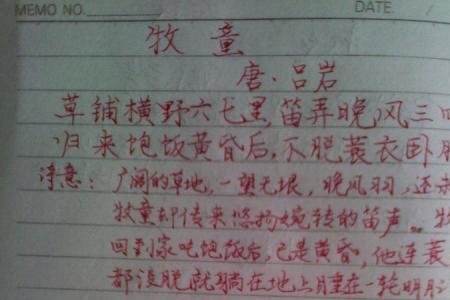 MEMO NO. DATE
牧童
唐·吕岩
草铺横野六七里,笛弄晚风三
归来饱饭黄昏后,不脱蓑衣卧
诗意:广阔的草地,一望无垠,晚风羽,还
牧童却传来悠扬婉转的笛声。牧
回到家吃饱饭后,已是黄昏,他连蓑
都没脱就躺在地上月睡在一轮明月